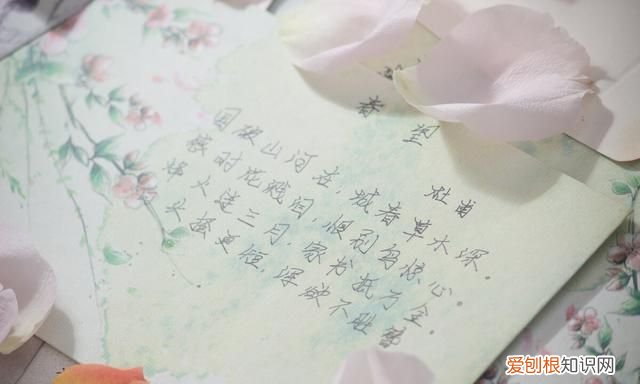 春望
杜甫
国破山河在，城春草木深。
感时花溅泪，恨别鸟惊心。
烽火连三月，家书抵万金。
白头搔更短，浑欲不胜簪
爱刨根知识网